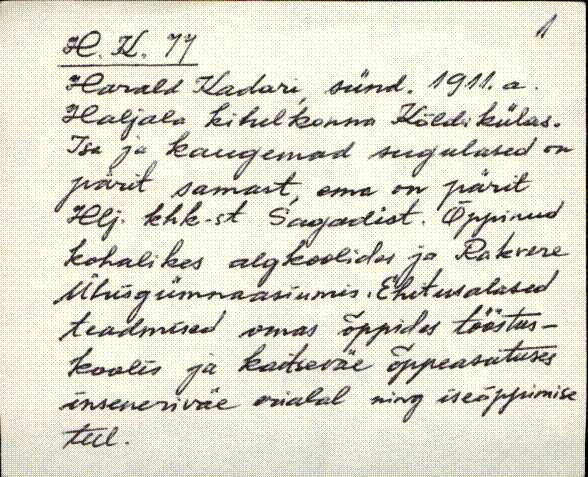 1
H. K. 77
Harald Kadari, sünd. 1911. a.
Haljala kihelkonna Kõldikülas.
Isa ja kaugemad sugulased on
pärit samast, ema on pärit
Hlj. khk-st Sagadist. Õppinud
kohalikes algkoolides ja Rakvere
Ühisgümnaasiumis. Ehitusalased
teadmised omas õppides tööstus-
koolis ja kaitseväe õppeasutuses
inseneriväe erialal ning iseõppimise
teel.